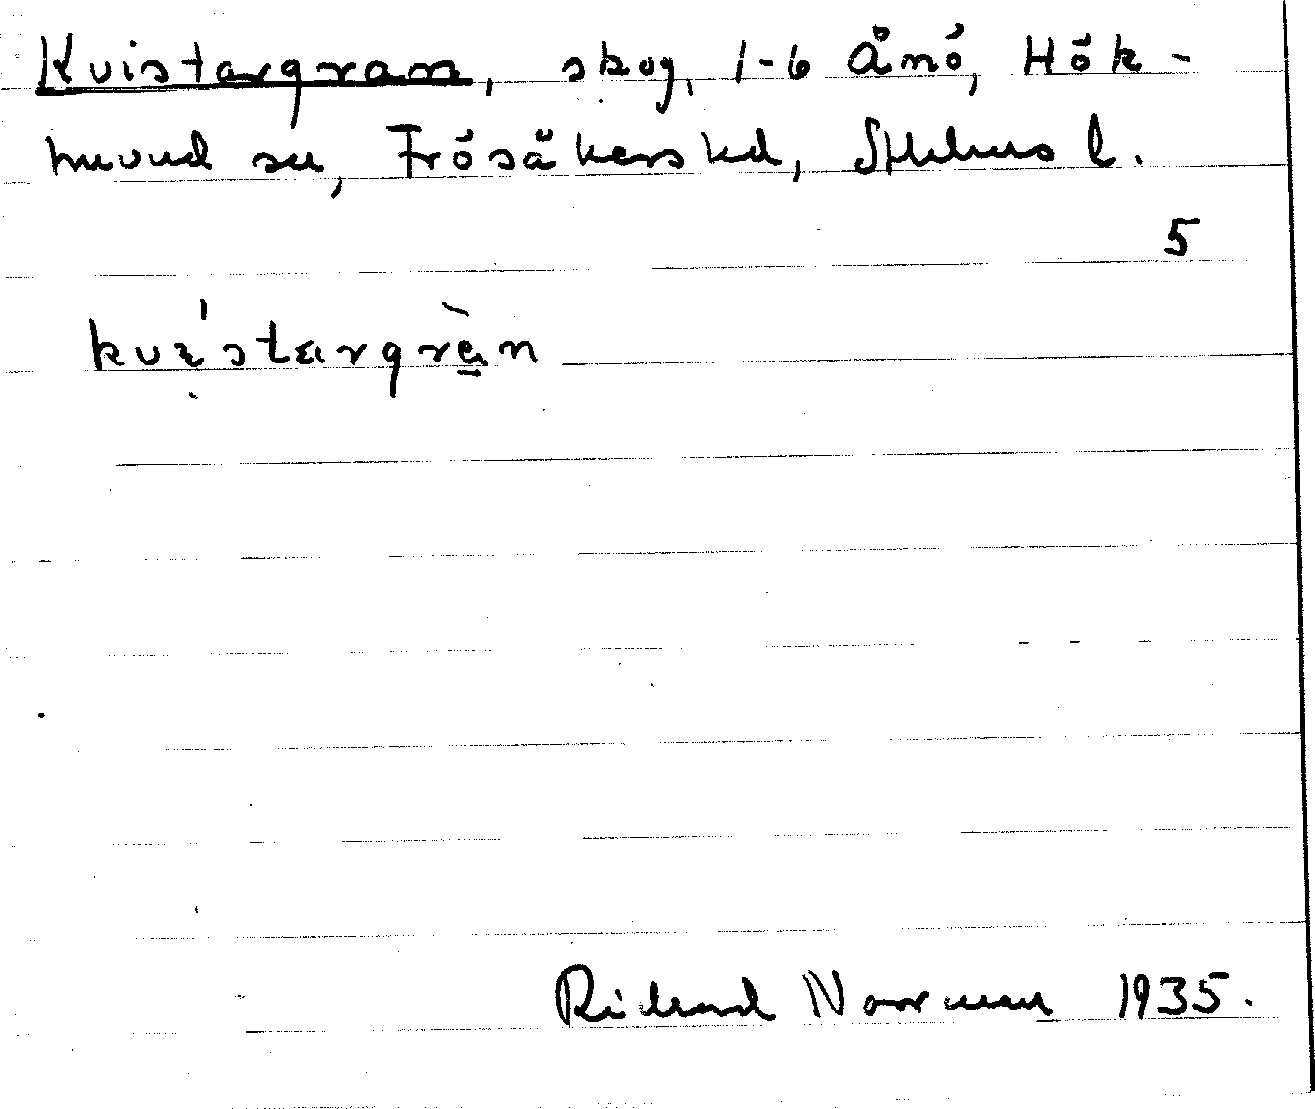 Kvistargran, skog, 1-6 Ånö, Hök-
huvud sn, Frösåkers hd, Sthlms l.
5
kvístargràn
Richard Norrman 1935.